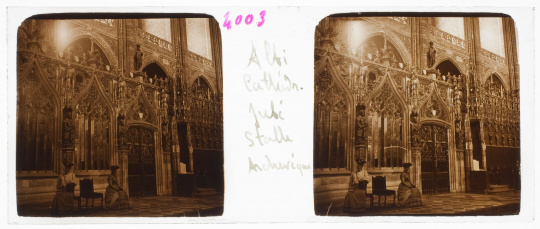 4003
Albi
Cathédr.
Jubé
Stalle
Archevêque